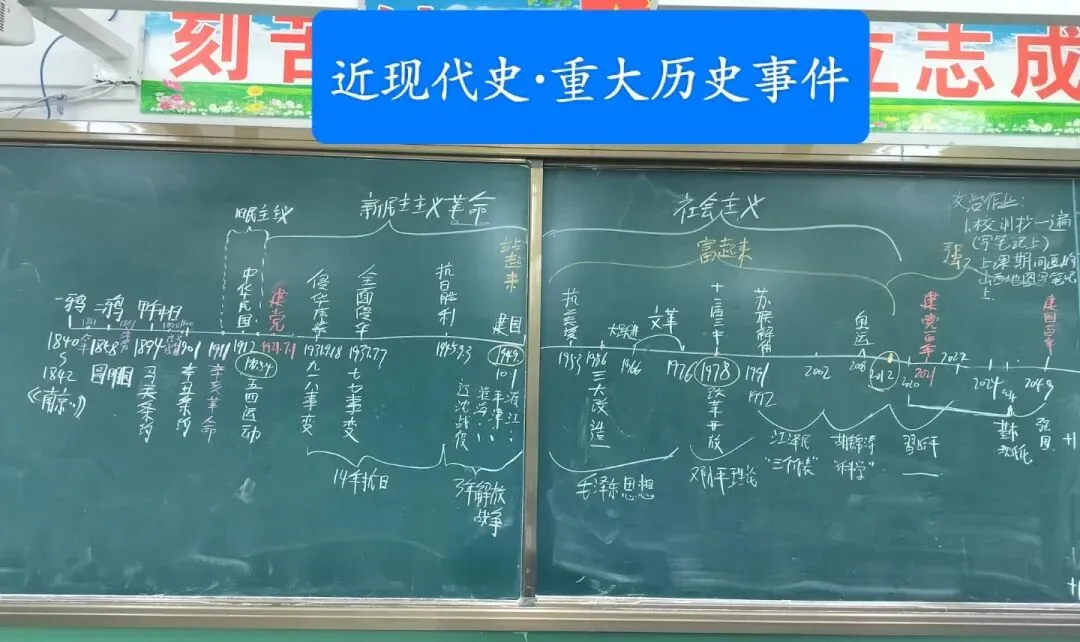 刻苦
立志成
近现代史·重大历史事件
旧民主主义
新民主主义革命
社会主义
政治作业:
1.校训抄一遍
(写笔记上)
2.上课期间画的
山西地图写笔记
上
站起来
富起来
强
一鸦
二鸦
甲午中日
中华民国
建党
侵华序幕
全面侵华
抗日胜利
建国
抗美援朝
大跃进
文革
十一届三中
苏联解体
奥运
建党百年
建国百年
1840
1842
《南京》
1894
马关条约
1901
辛丑条约
1911
辛亥革命
1912
1919.5.4
五四运动
1921.7.1
1931.9.18
九一八事变
1937.7.7
七七事变
1945.9.3
辽沈战役
淮海
平津
渡江
1949
10.1
1953
1956
三大改造
1966
1976
1978
改革开放
1991
1992
2002
2008
2012
2020
2021
2022
2024
2049
14年抗日
3年解放
战争
毛泽东思想
邓小平理论
江泽民
"三个代表"
胡锦涛
"科学"
习近平
基本
现代化
强国